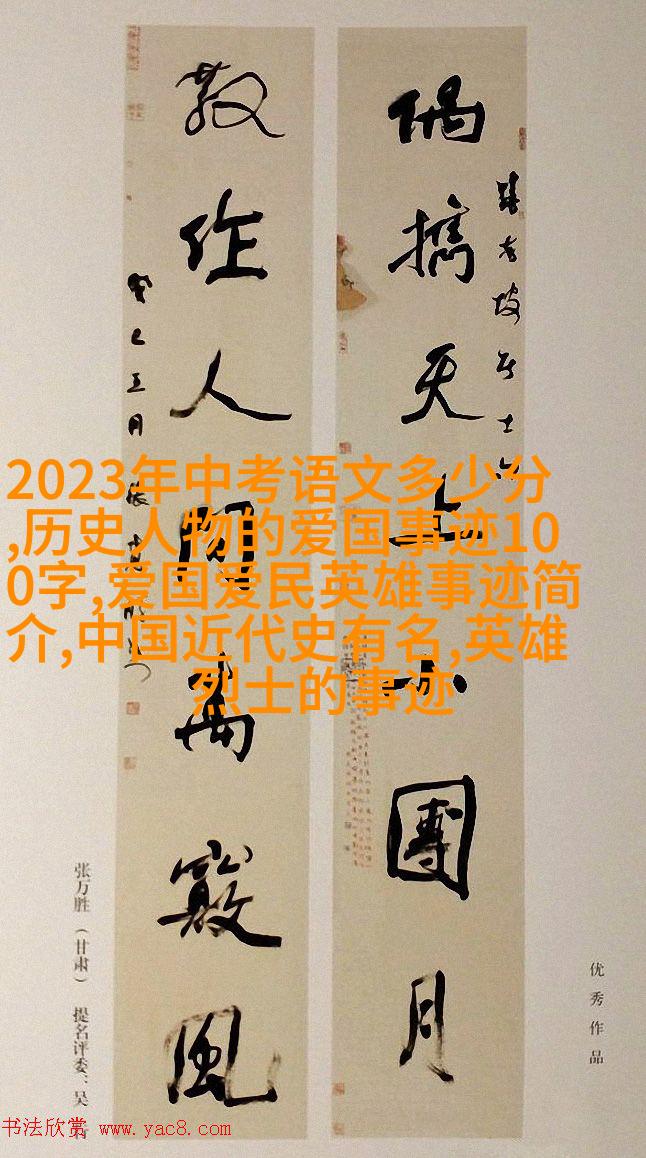 偶携天上小團月
散作人間萬竅風
癸巳五月
2023年中考语文多少分
,历史人物的爱国事迹10
0字,爱国爱民英雄事迹简
介,中国近代史有名,英雄
烈士的事迹
优秀作品
张万胜（甘肃） 提名评委：吴
书法欣赏 www.yac8.com